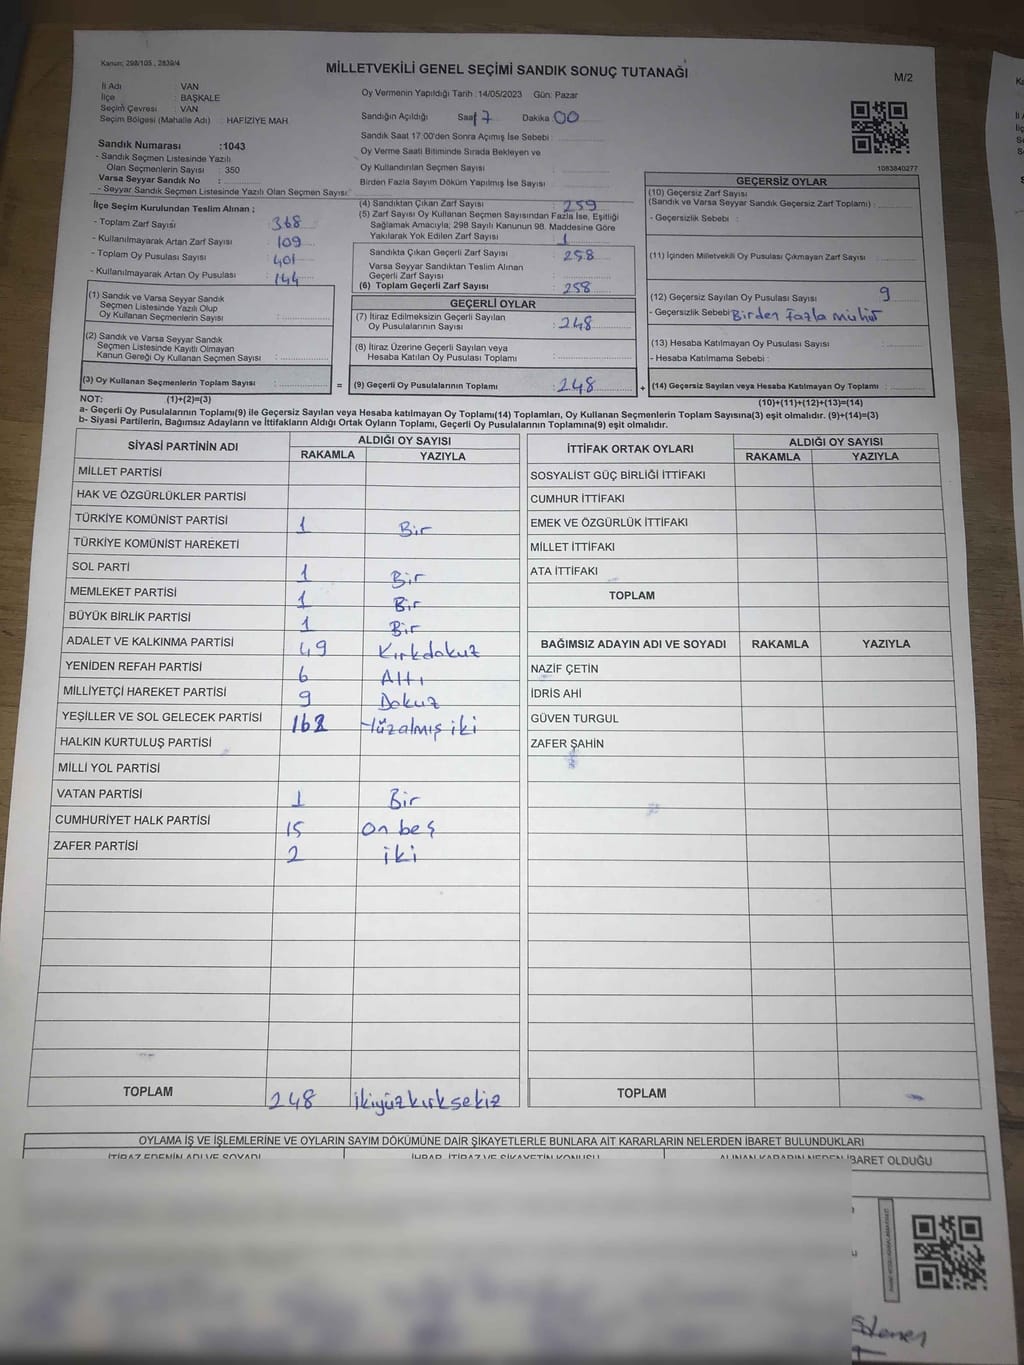 Kanun; 298/105 , 2839/4
MİLLETVEKİLİ GENEL SEÇİMİ SANDIK SONUÇ TUTANAĞI
M/2
İl Adı : VAN
İlçe : BAŞKALE
Seçim Çevresi : VAN
Seçim Bölgesi (Mahalle Adı) : HAFİZİYE MAH.
Sandık Numarası :1043
- Sandık Seçmen Listesinde Yazılı
Olan Seçmenlerin Sayısı : 350
Varsa Seyyar Sandık No :
- Seyyar Sandık Seçmen Listesinde Yazılı Olan Seçmen Sayısı:
Oy Vermenin Yapıldığı Tarih :14/05/2023 Gün: Pazar
Sandığın Açıldığı Saat 17 Dakika 00
Sandık Saat 17:00'den Sonra Açılmış İse Sebebi :
Oy Verme Saati Bitiminde Sırada Bekleyen ve
Oy Kullandırılan Seçmen Sayısı :
Birden Fazla Sayım Döküm Yapılmış İse Sayısı :
1083840277
İlçe Seçim Kurulundan Teslim Alınan ;
- Toplam Zarf Sayısı : 368
- Kullanılmayarak Artan Zarf Sayısı : 109
- Toplam Oy Pusulası Sayısı : 401
- Kullanılmayarak Artan Oy Pusulası : 144
(1) Sandık ve Varsa Seyyar Sandık
Seçmen Listesinde Yazılı Olup
Oy Kullanan Seçmenlerin Sayısı :
(2) Sandık ve Varsa Seyyar Sandık
Seçmen Listesinde Kayıtlı Olmayan
Kanun Gereği Oy Kullanan Seçmen Sayısı :
(3) Oy Kullanan Seçmenlerin Toplam Sayısı :
(4) Sandıktan Çıkan Zarf Sayısı : 259
(5) Zarf Sayısı Oy Kullanan Seçmen Sayısından Fazla İse, Eşitliği
Sağlamak Amacıyla; 298 Sayılı Kanunun 98. Maddesine Göre
Yakılarak Yok Edilen Zarf Sayısı : 1
Sandıkta Çıkan Geçerli Zarf Sayısı : 258
Varsa Seyyar Sandıktan Teslim Alınan
Geçerli Zarf Sayısı :
(6) Toplam Geçerli Zarf Sayısı : 258
GEÇERLİ OYLAR
(7) İtiraz Edilmeksizin Geçerli Sayılan
Oy Pusulalarının Sayısı : 248
(8) İtiraz Üzerine Geçerli Sayılan veya
Hesaba Katılan Oy Pusulası Toplamı :
= (9) Geçerli Oy Pusulalarının Toplamı : 248 +
GEÇERSİZ OYLAR
(10) Geçersiz Zarf Sayısı
(Sandık ve Varsa Seyyar Sandık Geçersiz Zarf Toplamı) :
- Geçersizlik Sebebi :
(11) İçinden Milletvekili Oy Pusulası Çıkmayan Zarf Sayısı :
(12) Geçersiz Sayılan Oy Pusulası Sayısı : 9
- Geçersizlik Sebebi : Birden Fazla Mühür
(13) Hesaba Katılmayan Oy Pusulası Sayısı :
- Hesaba Katılmama Sebebi :
(14) Geçersiz Sayılan veya Hesaba Katılmayan Oy Toplamı :
NOT: (1)+(2)=(3)
(10)+(11)+(12)+(13)=(14)
a- Geçerli Oy Pusulalarının Toplamı(9) ile Geçersiz Sayılan veya Hesaba katılmayan Oy Toplamı(14) Toplamları, Oy Kullanan Seçmenlerin Toplam Sayısına(3) eşit olmalıdır. (9)+(14)=(3)
b- Siyasi Partilerin, Bağımsız Adayların ve İttifakların Aldığı Ortak Oyların Toplamı, Geçerli Oy Pusulalarının Toplamına(9) eşit olmalıdır.
SİYASİ PARTİNİN ADI ALDIĞI OY SAYISI
RAKAMLA YAZIYLA
MİLLET PARTİSİ
HAK VE ÖZGÜRLÜKLER PARTİSİ
TÜRKİYE KOMÜNİST PARTİSİ 1 Bir
TÜRKİYE KOMÜNİST HAREKETİ
SOL PARTİ 1 Bir
MEMLEKET PARTİSİ 1 Bir
BÜYÜK BİRLİK PARTİSİ 1 Bir
ADALET VE KALKINMA PARTİSİ 49 Kırkdokuz
YENİDEN REFAH PARTİSİ 6 Altı
MİLLİYETÇİ HAREKET PARTİSİ 9 Dokuz
YEŞİLLER VE SOL GELECEK PARTİSİ 162 Yüzalmış iki
HALKIN KURTULUŞ PARTİSİ
MİLLİ YOL PARTİSİ
VATAN PARTİSİ 1 Bir
CUMHURİYET HALK PARTİSİ 15 On beş
ZAFER PARTİSİ 2 iki
TOPLAM 248 ikiyüzkırksekiz
İTTİFAK ORTAK OYLARI ALDIĞI OY SAYISI
RAKAMLA YAZIYLA
SOSYALİST GÜÇ BİRLİĞİ İTTİFAKI
CUMHUR İTTİFAKI
EMEK VE ÖZGÜRLÜK İTTİFAKI
MİLLET İTTİFAKI
ATA İTTİFAKI
TOPLAM
BAĞIMSIZ ADAYIN ADI VE SOYADI RAKAMLA YAZIYLA
NAZİF ÇETİN
İDRİS AHİ
GÜVEN TURGUL
ZAFER ŞAHİN
TOPLAM
OYLAMA İŞ VE İŞLEMLERİNE VE OYLARIN SAYIM DÖKÜMÜNE DAİR ŞİKAYETLERLE BUNLARA AİT KARARLARIN NELERDEN İBARET BULUNDUKLARI
İTİRAZ EDENİN ADI VE SOYADI İHBAR, İTİRAZ VE ŞİKAYETİN KONUSU ALINAN KARARIN NEDEN İBARET OLDUĞU